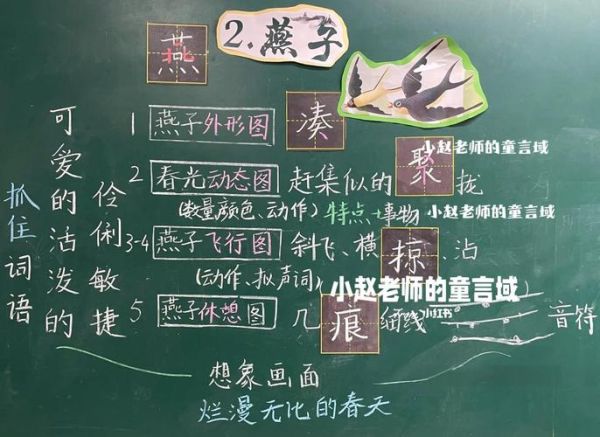 燕
2.燕子
抓住词语
可爱的活泼的
伶俐敏捷
1 燕子外形图 凑
小赵老师的童言域
2 春光动态图 赶集似的 聚 拢
(数量颜色、动作) 特点+事物
小赵老师的童言域
3-4 燕子飞行图 斜飞、横 掠、沾
(动作、拟声词)
小赵老师的童言域
小红书
5 燕子休憩图 几 痕 细线 音符
想象画面
烂漫无比的春天